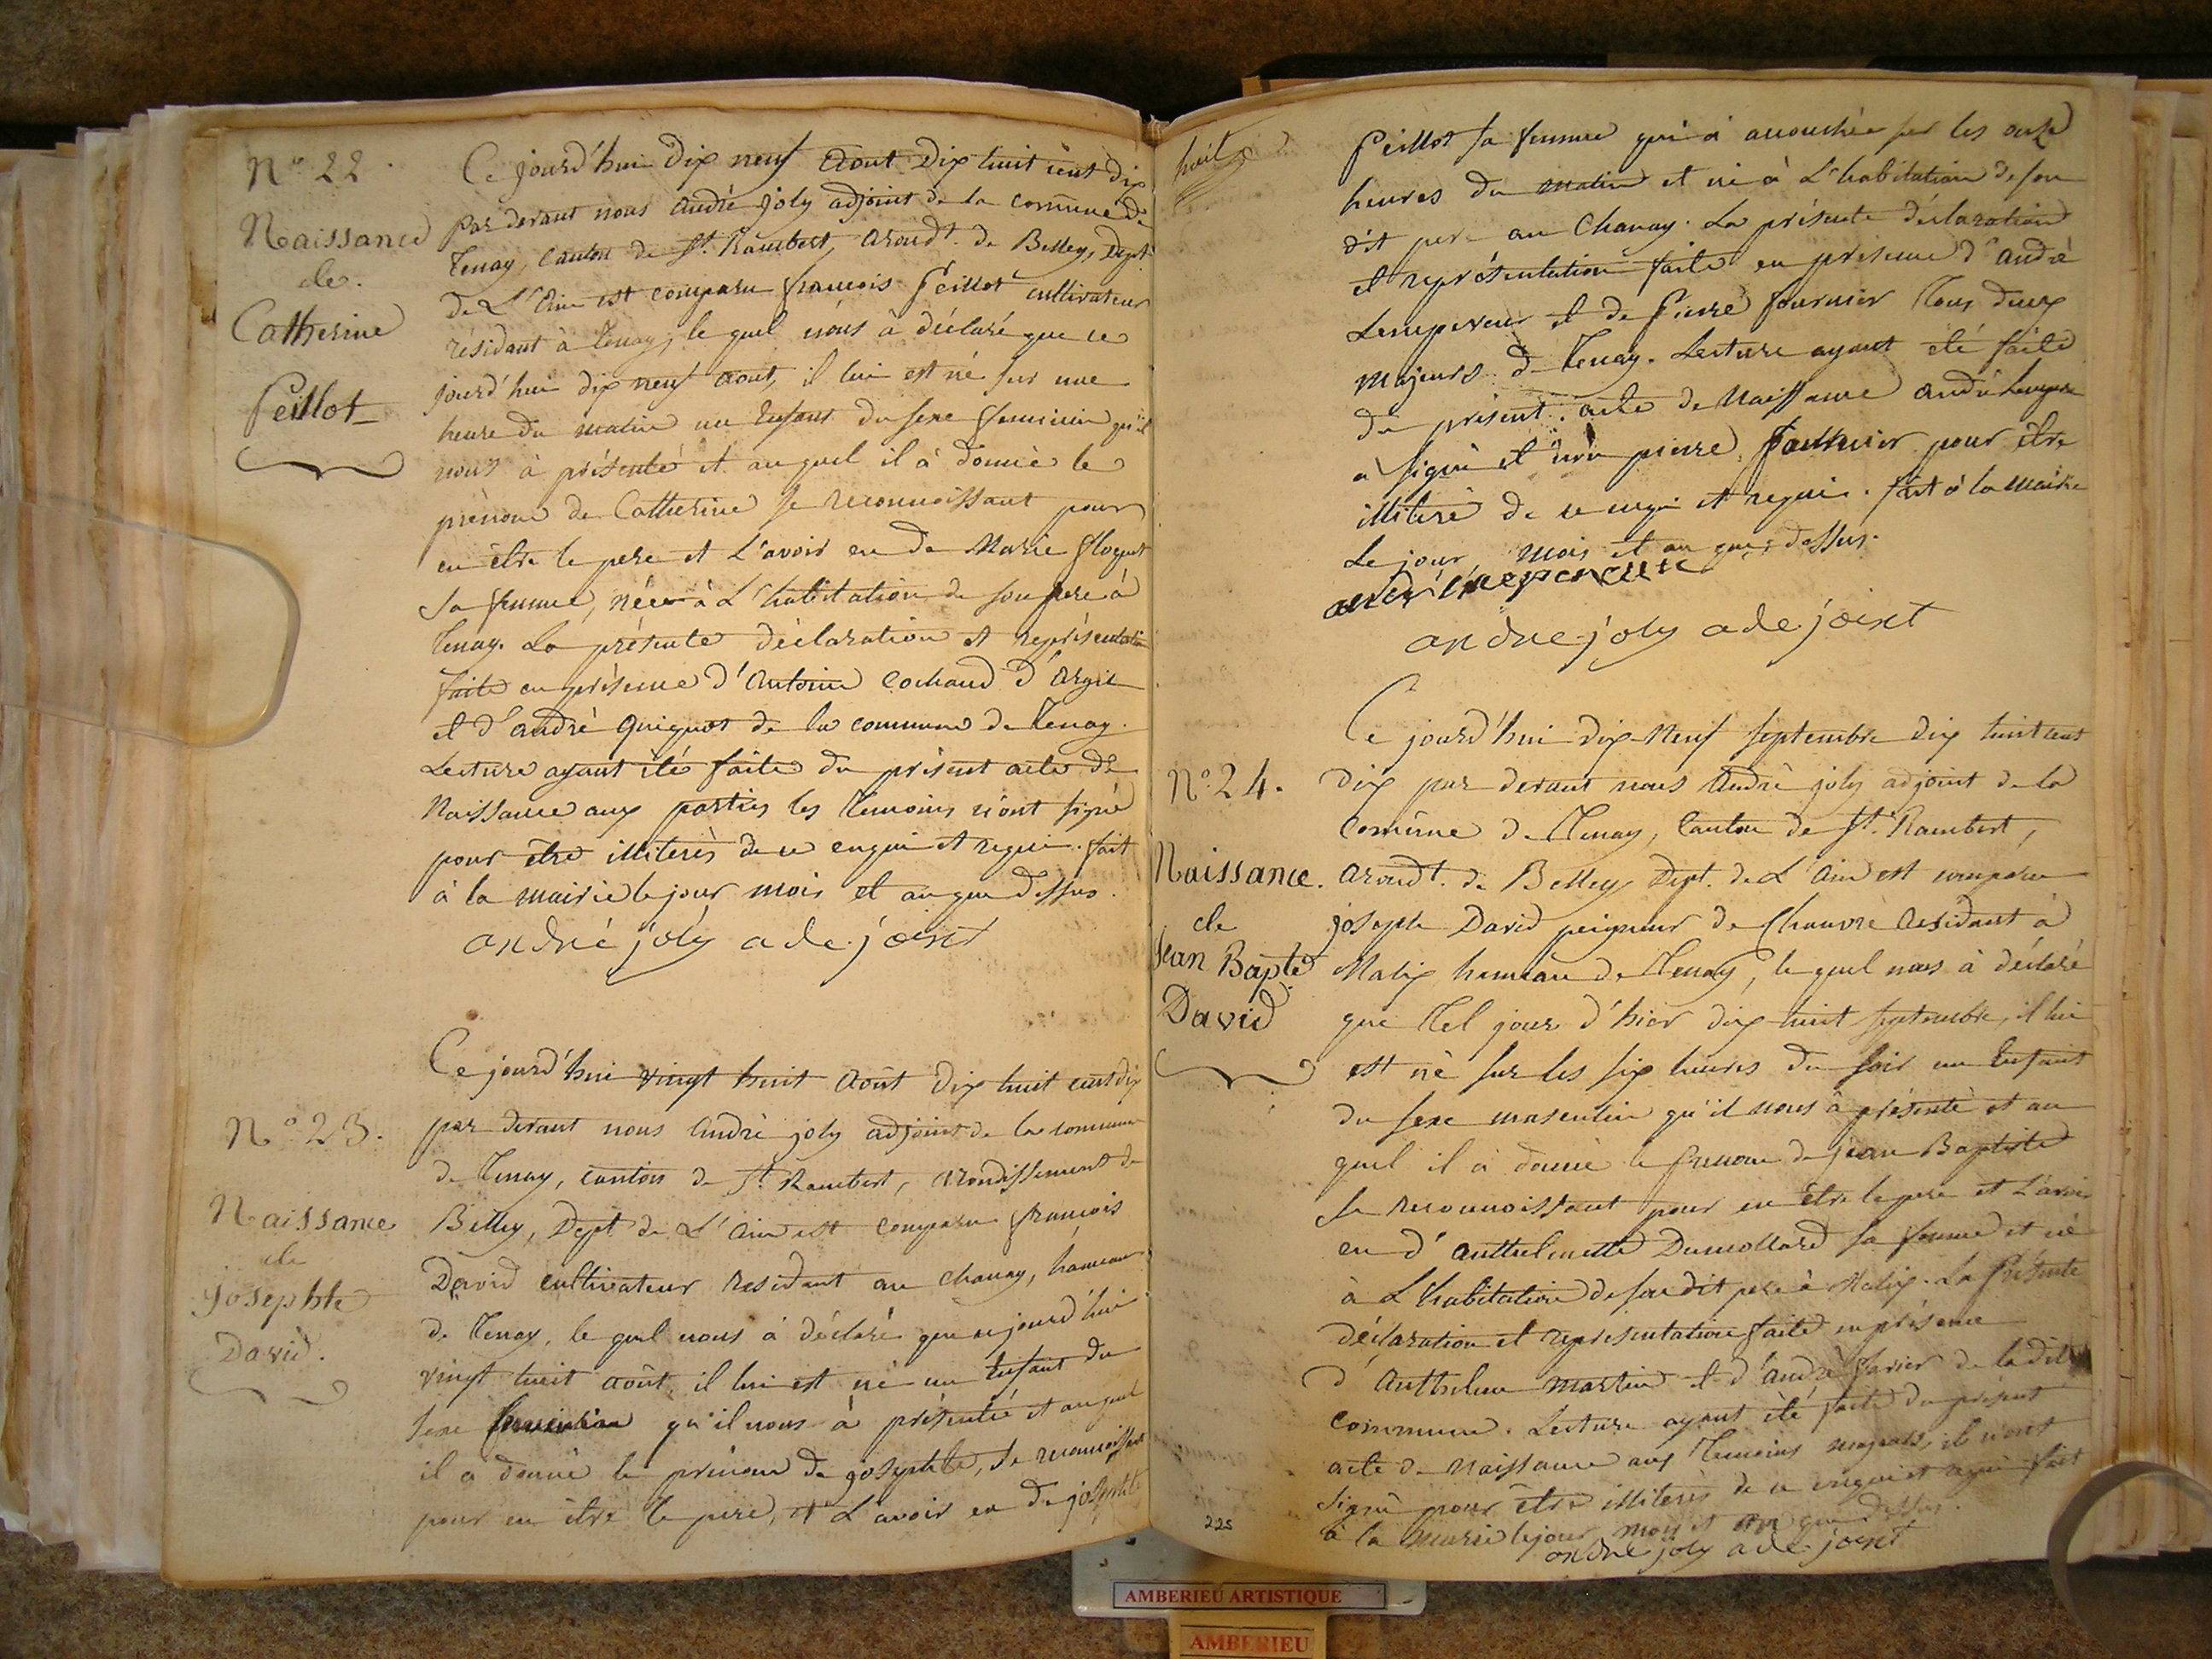 N.º 22.
Naissance
de.
Catherine
Peillot
Ce jourd'hui dix neuf Aout dix huit cent dix
par devant nous André joly adjoint de la commune de
Tenay, Canton de St. Rambert, Arondt. de Belley, Dept.
de L'Ain est comparu françois Peillot cultivateur
résidant à Tenay, le quel nous à déclaré que ce
jourd'hui dix neuf aout, il lui est né sur une
heure du matin un Enfant du sexe feminin qu'il
nous à présenté et auquel il à donné le
prénom de Catherine se reconnoissant pour
en être le pere et L'avoir eu de Marie
sa femme, née à L'habitation de son pere à
Tenay. La présente déclaration et représentation
faite en présence d'Antoine Cochaud d'Argis
et d'andré quignot de la commune de Tenay.
Lecture ayant été faite du présent acte de
Naissance aux parties les Temoins n'ont signé
pour être illiterés de ce enquis et requis. fait
à la mairie le jour mois et an que dessus.
andré joly ade.joint
N.º 23.
Naissance
de
Josephte
David.
Ce jourd'hui vingt huit Août dix huit cent dix
par devant nous André joly adjoint de la commune
de Tenay, canton de St. Rambert, arondissement de
Belley, Dept. de L'Ain est comparu françois
David cultivateur résidant au Chanay, hameau
de Tenay, le quel nous à déclaré que ce jourd'hui
vingt huit août, il lui est né un Enfant du
sexe feminin qu'il nous à présentée et auquel
il à donné le prénom de josephte, se reconnoissant
pour en être le pere, et L'avoir eu de josephte
huit
Peillot sa femme qui à accouchée sur les onze
heures du matin et né à L'habitation de son
dit pere au Chanay. La présente déclaration
et représentation faite en présence d'André
Lempereur et de Pierre fournier Tous deux
majeurs de Tenay. Lecture ayant été faite
du présent acte de Naissance andré Lempereur
à signé et non pierre fournier pour être
illiteré de ce enqui et requis. fait à la mairie
Le jour, mois et an que dessus.
andré lempereur
andre joly ade.joint
N.º 24.
Naissance.
de
Jean Bapte
David
Ce jourd'hui dix-neuf septembre dix huit cent
dix par devant nous André joly adjoint de la
Commune de Tenay, Canton de St. Rambert,
Arondt. de Belley Dept. de L'Ain est comparu
joseph David peigneur de Chanvre résidant à
Malix hameau de Tenay, le quel nous à déclaré
que Tel jour d'hier dix huit septembre, il lui
est né sur les six heures du soir un Enfant
du sexe masculin qu'il nous à présenté et au
quel il à donné le prenom de jean Baptiste
se reconnoissant pour en être le pere et L'avoir
eu d'Anthelmette Dumollard sa femme et né
à L'habitation de son dit pere à Malix. La présente
déclaration et représentation faite en présence
d'Anthelme martin et d'andré favier de la dite
Commune. Lecture ayant été faite du présent
acte de Naissance aux Temoins majeurs, ils n'ont
signé pour être illiterés de ce enquis et requis fait
à la mairie le jour mois et an que dessus.
andre joly ade.joint
225
AMBERIEU ARTISTIQUE
AMBERIEU